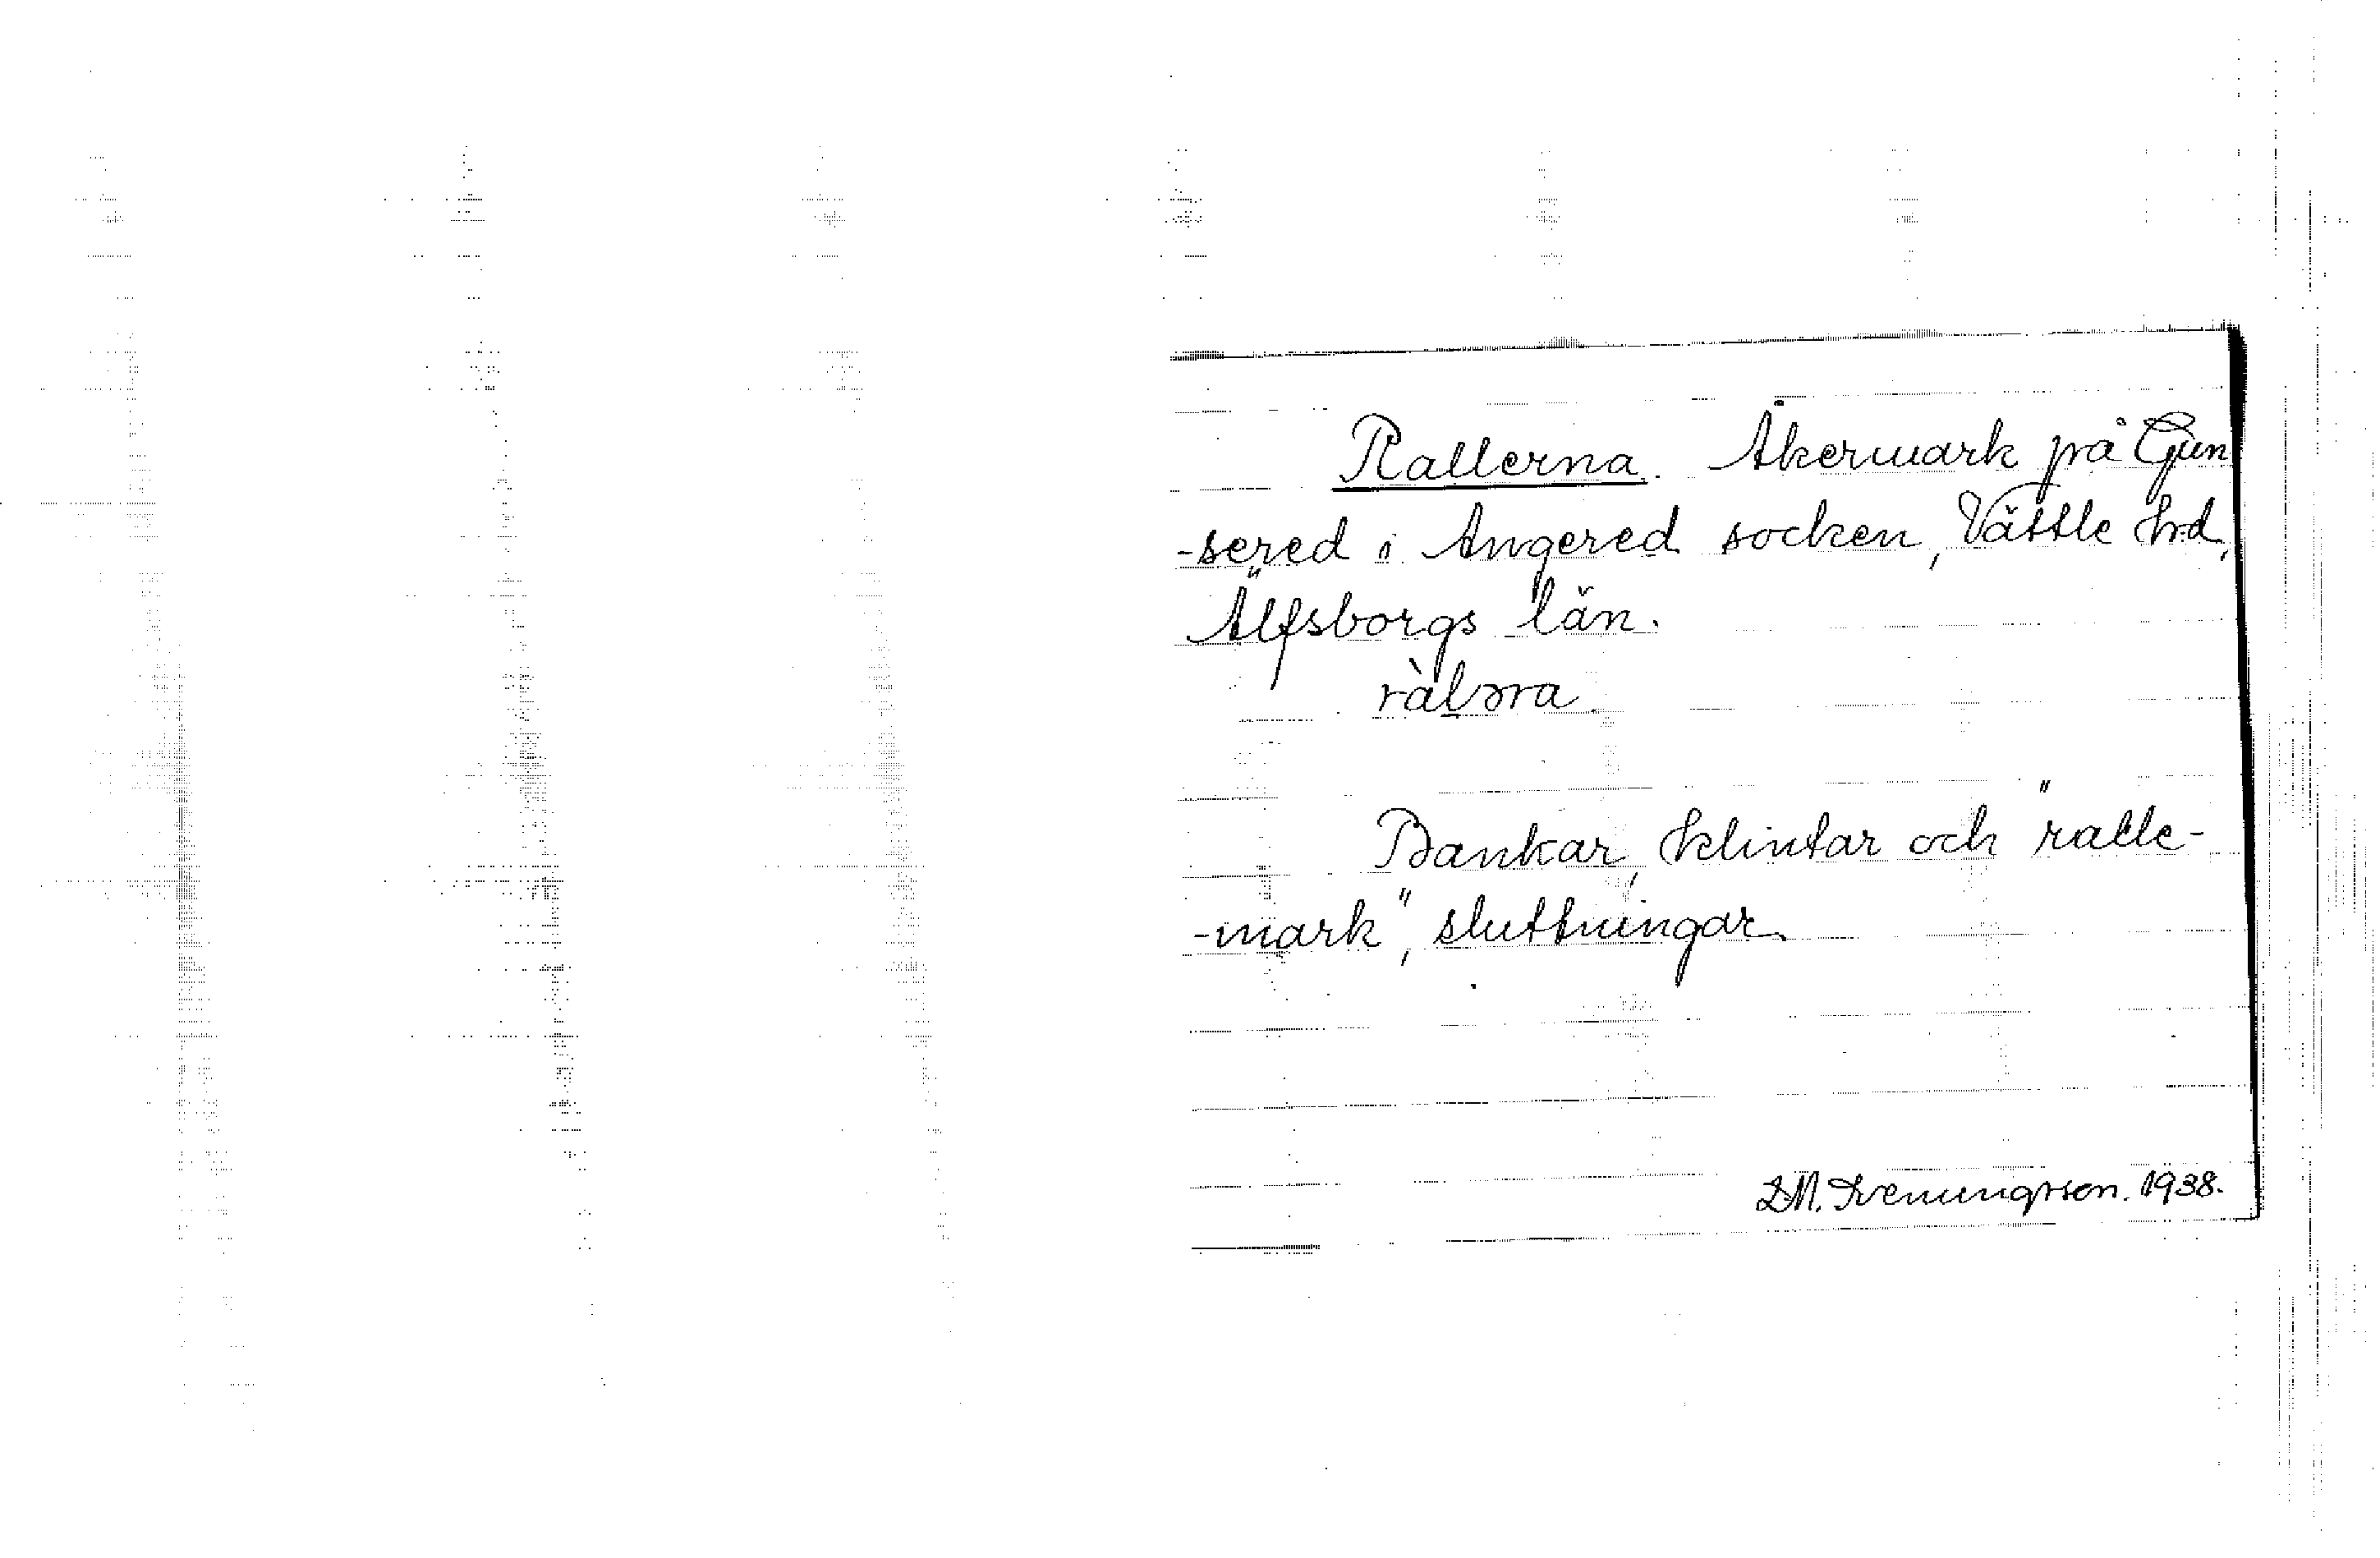 Rallerna. Åkermark på Gun
-sered i Angered socken, Vättle hd,
Älfsborgs län.
ràlɔra.
Bankar, klintar och "ralle-
-mark", sluttningar.
1938.